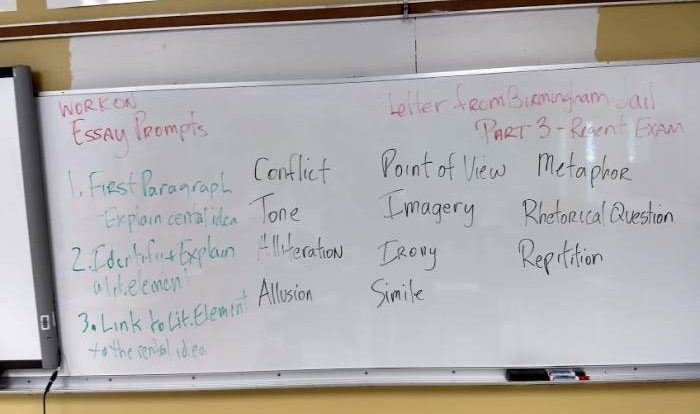 WORK ON
ESSAY Prompts
Letter from Birmingham Jail
PART 3 - Regent EXAM
1. First Paragraph
Explain cental idea
2. Identify + Explain
a lit. element
3. Link to Lit. Element
to the cental idea
Conflict
Tone
Alliteration
Allusion
Point of View
Imagery
Irony
Simile
Metaphor
Rhetorical Question
Reptition